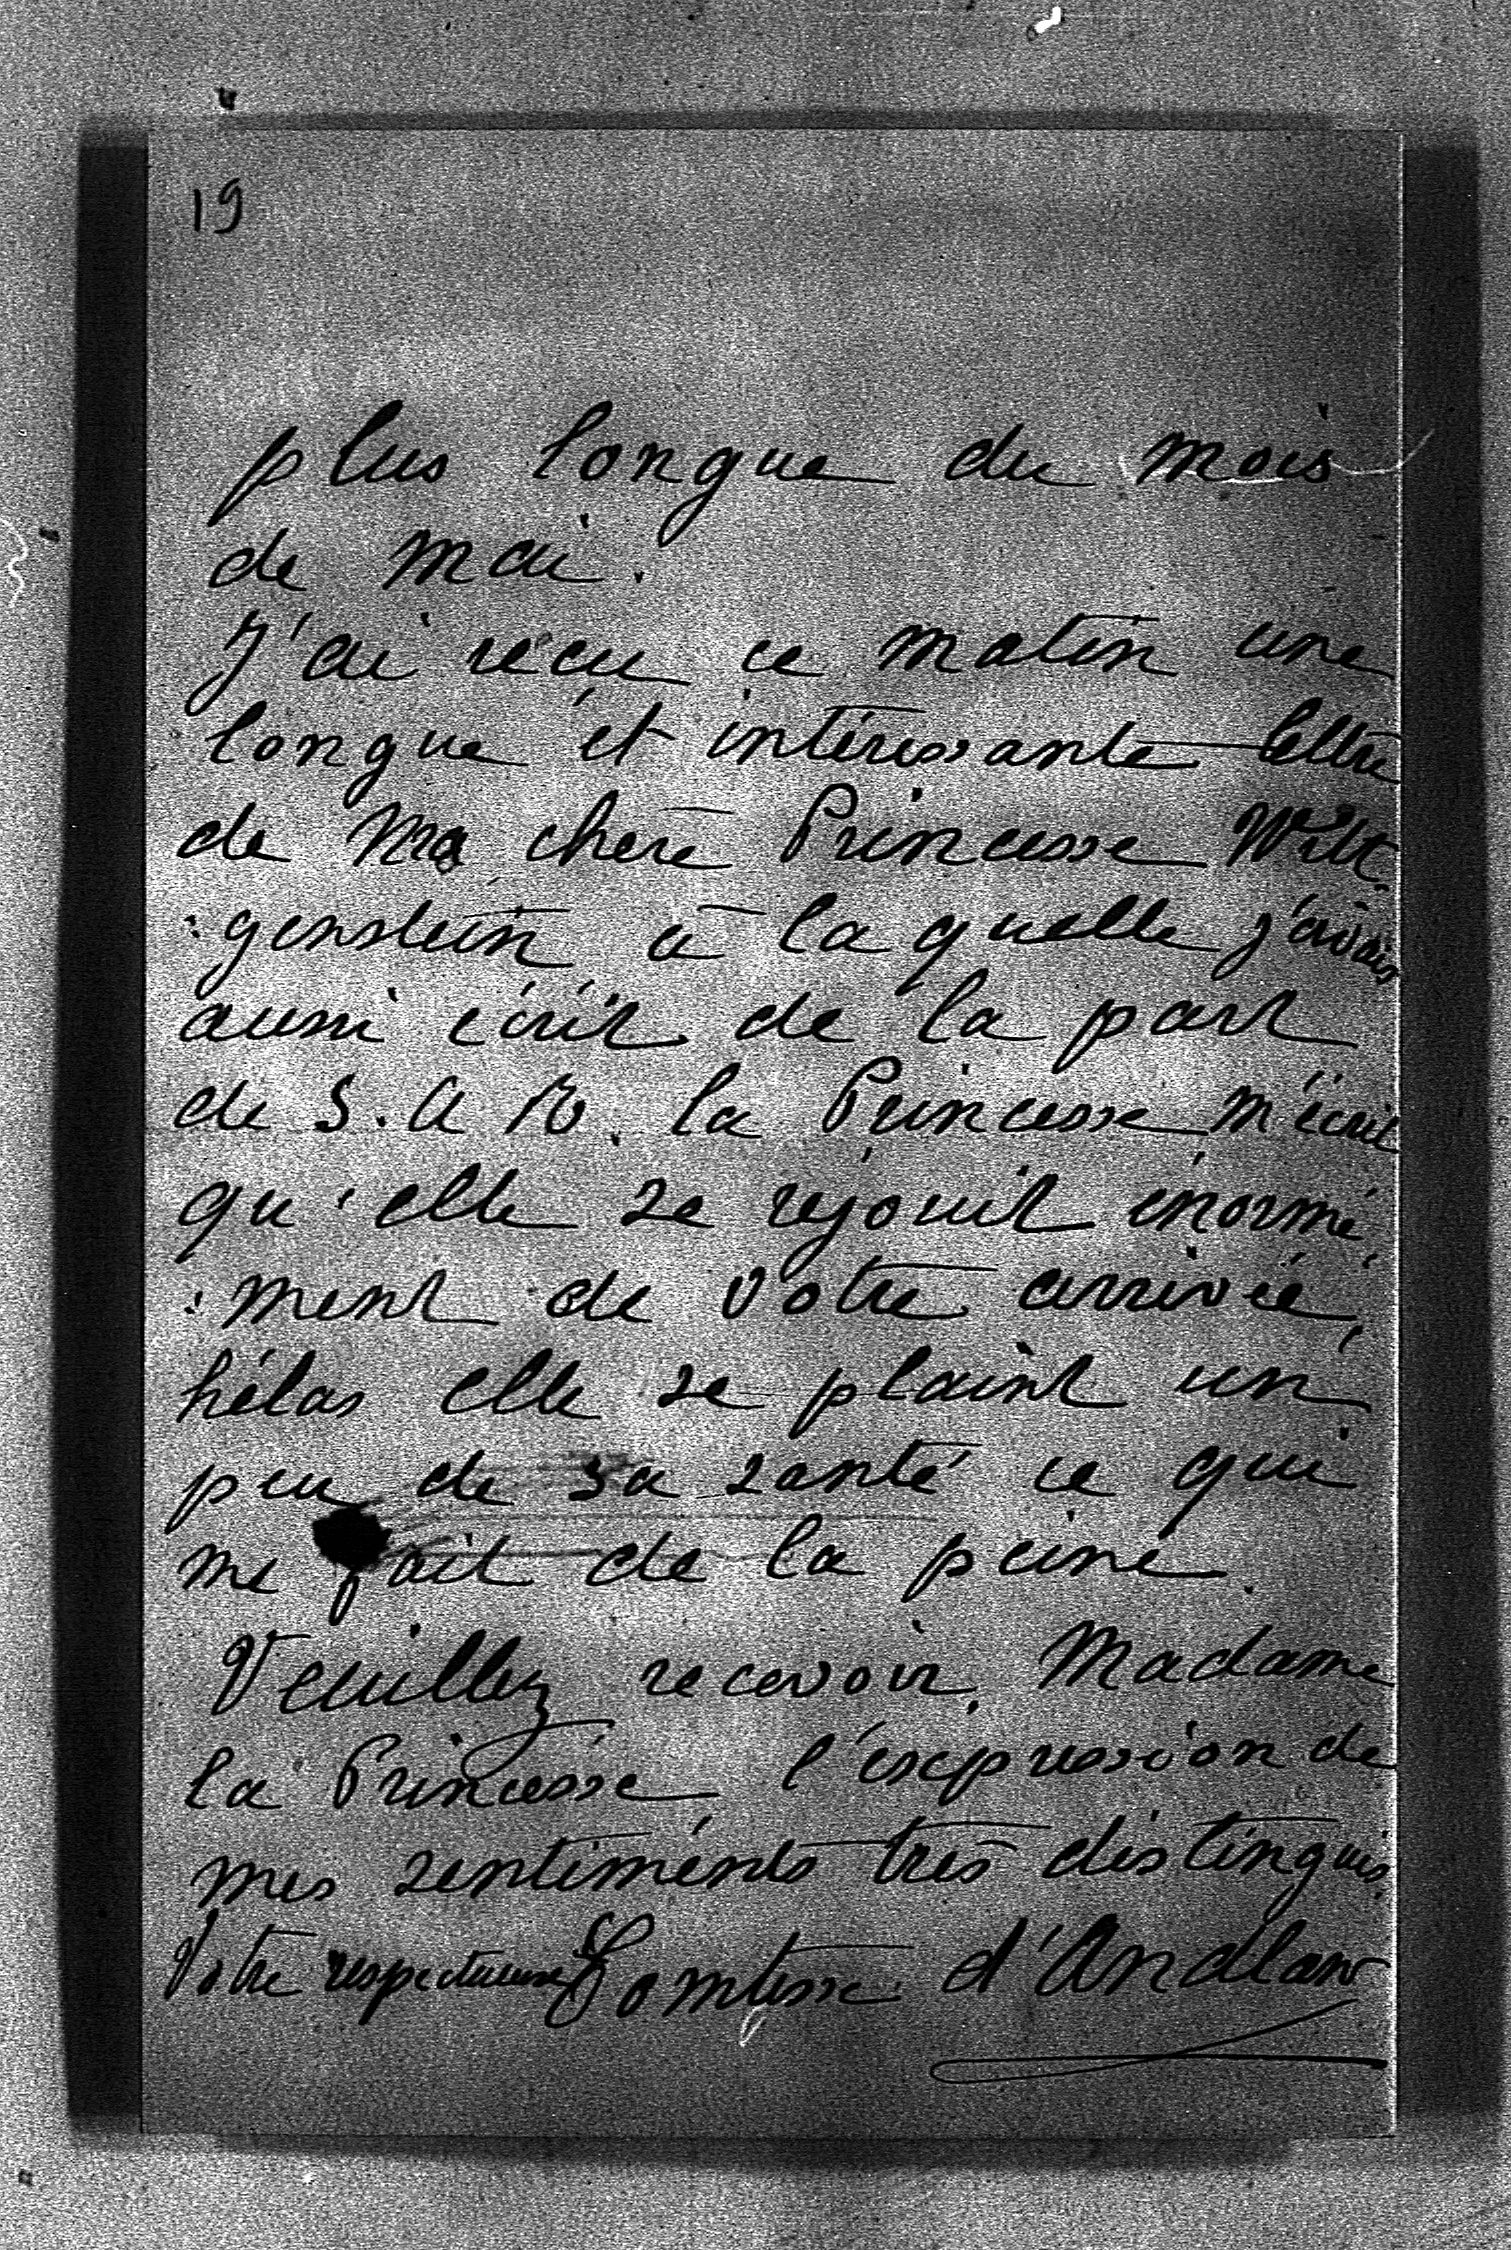 19
plus longue du mois
de mai.
J'ai réçu ce matin une
longue et intéressante lettre
de ma chere Princesse Witt.
:genstein à la quelle j'avais
aussi écrit de la part
de S. A R. la Princesse m'écrit
qu'elle se réjouit énormé:
:ment de votre arrivée,
hélas elle se plaint un
peu de sa santé ce qui
me fait de la peine.
Veuillez recevoir, Madame
la Princesse l'expression de
mes sentiments très distingués.
Votre respectueuse Comtesse d'Andlaw